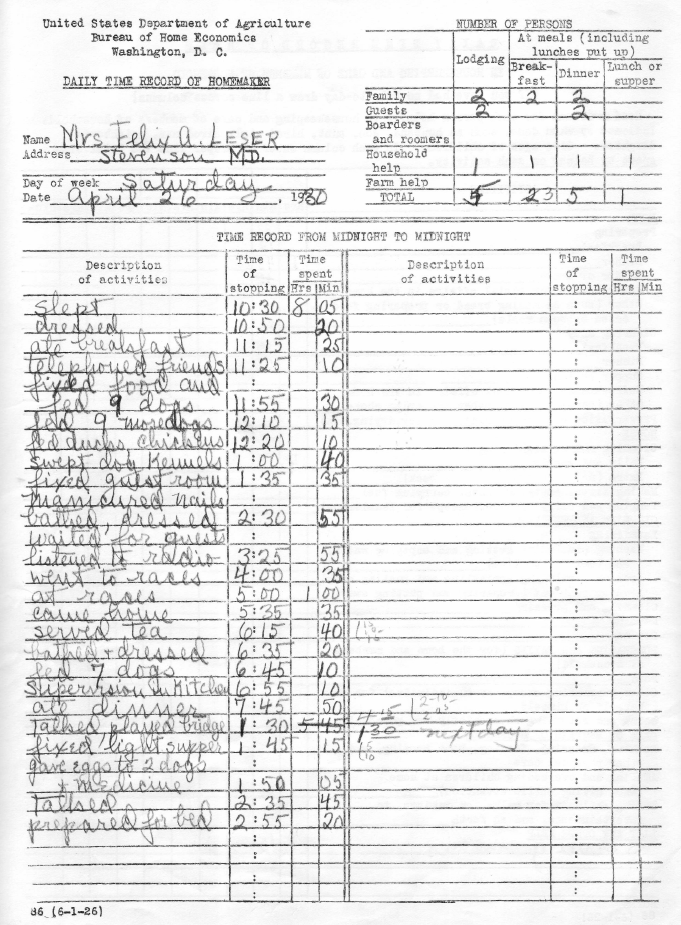 United States Department of Agriculture
Bureau of Home Economics
Washington, D. C.
DAILY TIME RECORD OF HOMEMAKER
Name Mrs Felix A. LESER
Address Stevenson M.D.
Day of week Saturday
Date April 26, 1930
NUMBER OF PERSONS
Lodging
At meals (including lunches put up)
Break-fast Dinner Lunch or supper
Family 2 2 2
Guests 2 2
Boarders and roomers
Household help 1 1 1 1
Farm help
TOTAL 5 23 5 1
TIME RECORD FROM MIDNIGHT TO MIDNIGHT
Description of activities Time of stopping Time spent Hrs Min Description of activities Time of stopping Time spent Hrs Min
Slept 10:30 8 05
dressed 10:50 20
ate breakfast 11:15 25
telephoned friends 11:25 10
fixed food and
fed 9 dogs 11:55 30
fed 9 more dogs 12:10 15
fed ducks chickens 12:20 10
swept dog kennels 1:00 40
fixed guest room 1:35 35
manicured nails
bathed, dressed 2:30 55
waited for guests
listened to radio 3:25 55
went to races 4:00 35
at races 5:00 1 00
came home 5:35 35
served tea 6:15 40
bathed + dressed 6:35 20
fed 7 dogs 6:45 10
Supervision in Kitchen 6:55 10
ate dinner 7:45 50
Talked, played bridge 1:30 5 45 4 15
130 next day
fixed light supper 1:45 15
gave eggs to 2 dogs
+ medicine 1:50 05
Talked 2:35 45
prepared for bed 2:55 20
86 (6-1-26)